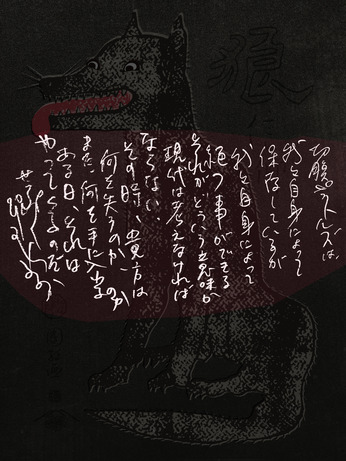 切腹ピストルズは、
我々自身によって
保存しているが
我々自身によって
絶つ事ができる
それがどういう意味か
現代は考えなければ
ならない。
その時、貴方は
何を失うのか、
また、何を手に入るのか
ある日、それは
やってくるのだ
狼